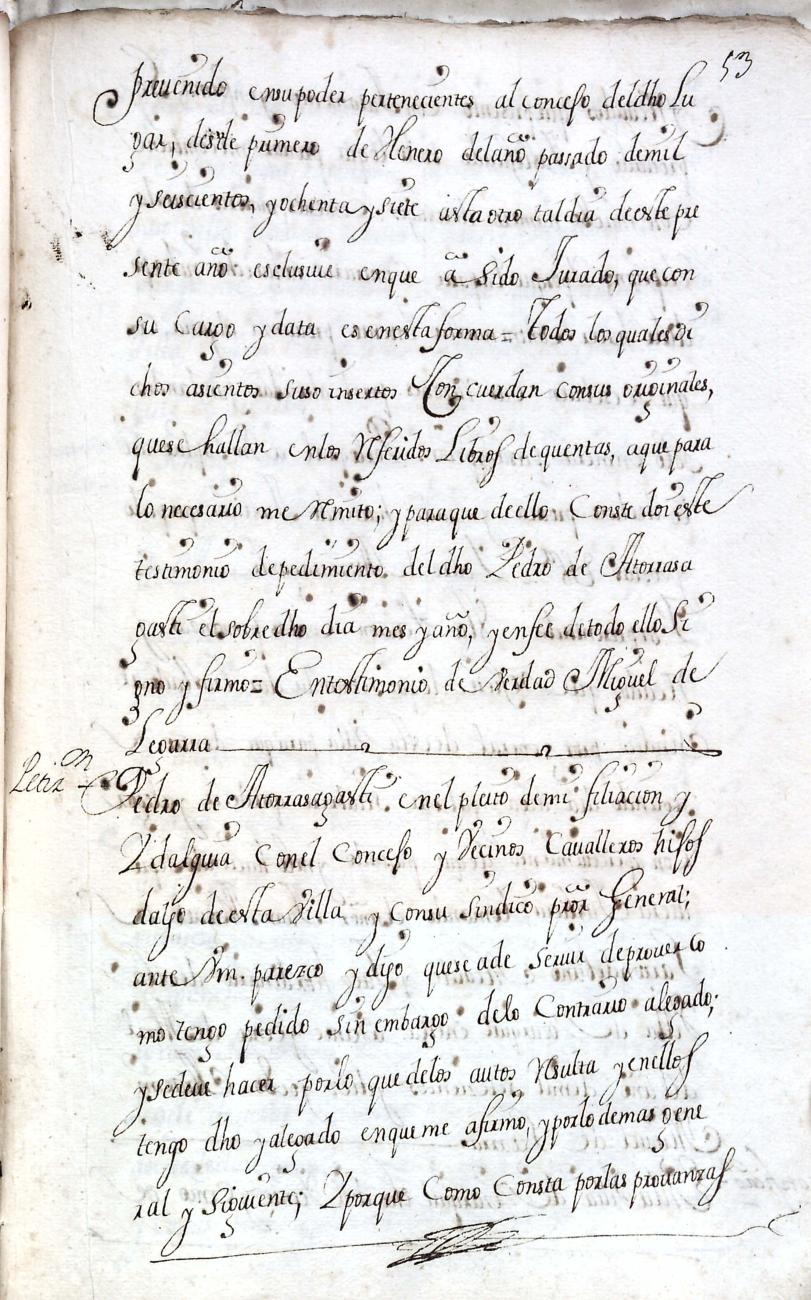 53
prevenido ensupoder pertenecientes al concejo deldho Lu
gar, desde primero de Henero delaño passado demil
y seiscientos, yochenta ysiete asta otro taldia deeste pre
sente año esclusiue enque â sido Jurado, que con
su Cargo y data es enesta forma = Todos losquales di
chos asientos suso insertos Concuerdan consus originales,
quese hallan enlos Referidos Libros dequentas, aque para
lo necesario me Remito; yparaque deello Conste doi este
testimonio depedimiento deldho Pedro de Atorrasa
gasti elsobredho dia mes y año, yenfee detodo ello Si
gno y firmo = Entestimonio de Verdad Miguel de
Legarra
Petizon
Pedro de Atorrasagasti enel pleito demi filiacion y
Ydalguia Conel Concejo y Vecinos Cavalleros hijos
dalgo deesta Villa y Consu Sindico pror General;
ante Vm. parezco y digo quese ade Seruir deproueer co
mo tengo pedido sin embargo delo Contrario alegado;
ysedeue hacer porlo que delos autos Resulta yenellos
tengo dho yalegado enqueme afirmo, yporlodemas gene
ral y Siguiente; Yporque Como Consta porlas prouanzas